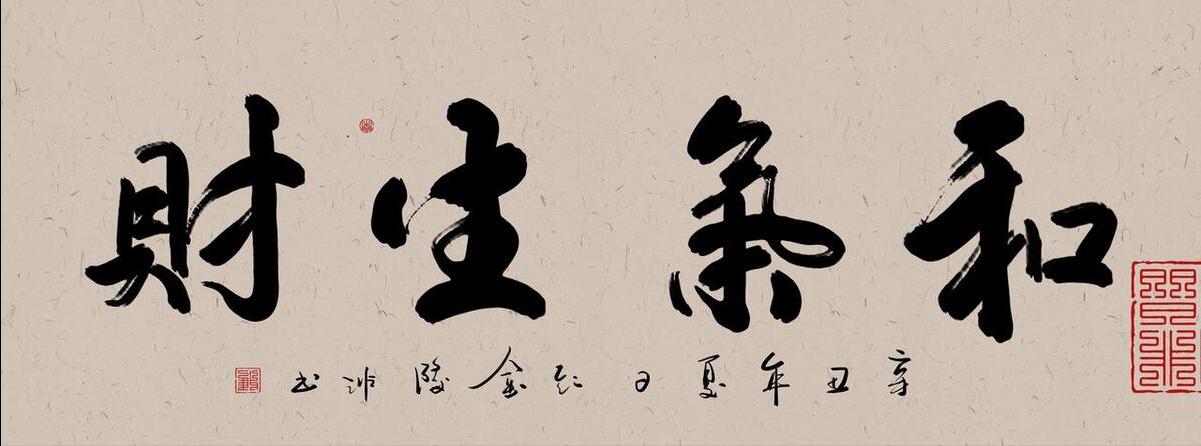 和氣生財
辛丑年夏日於金陵沛书